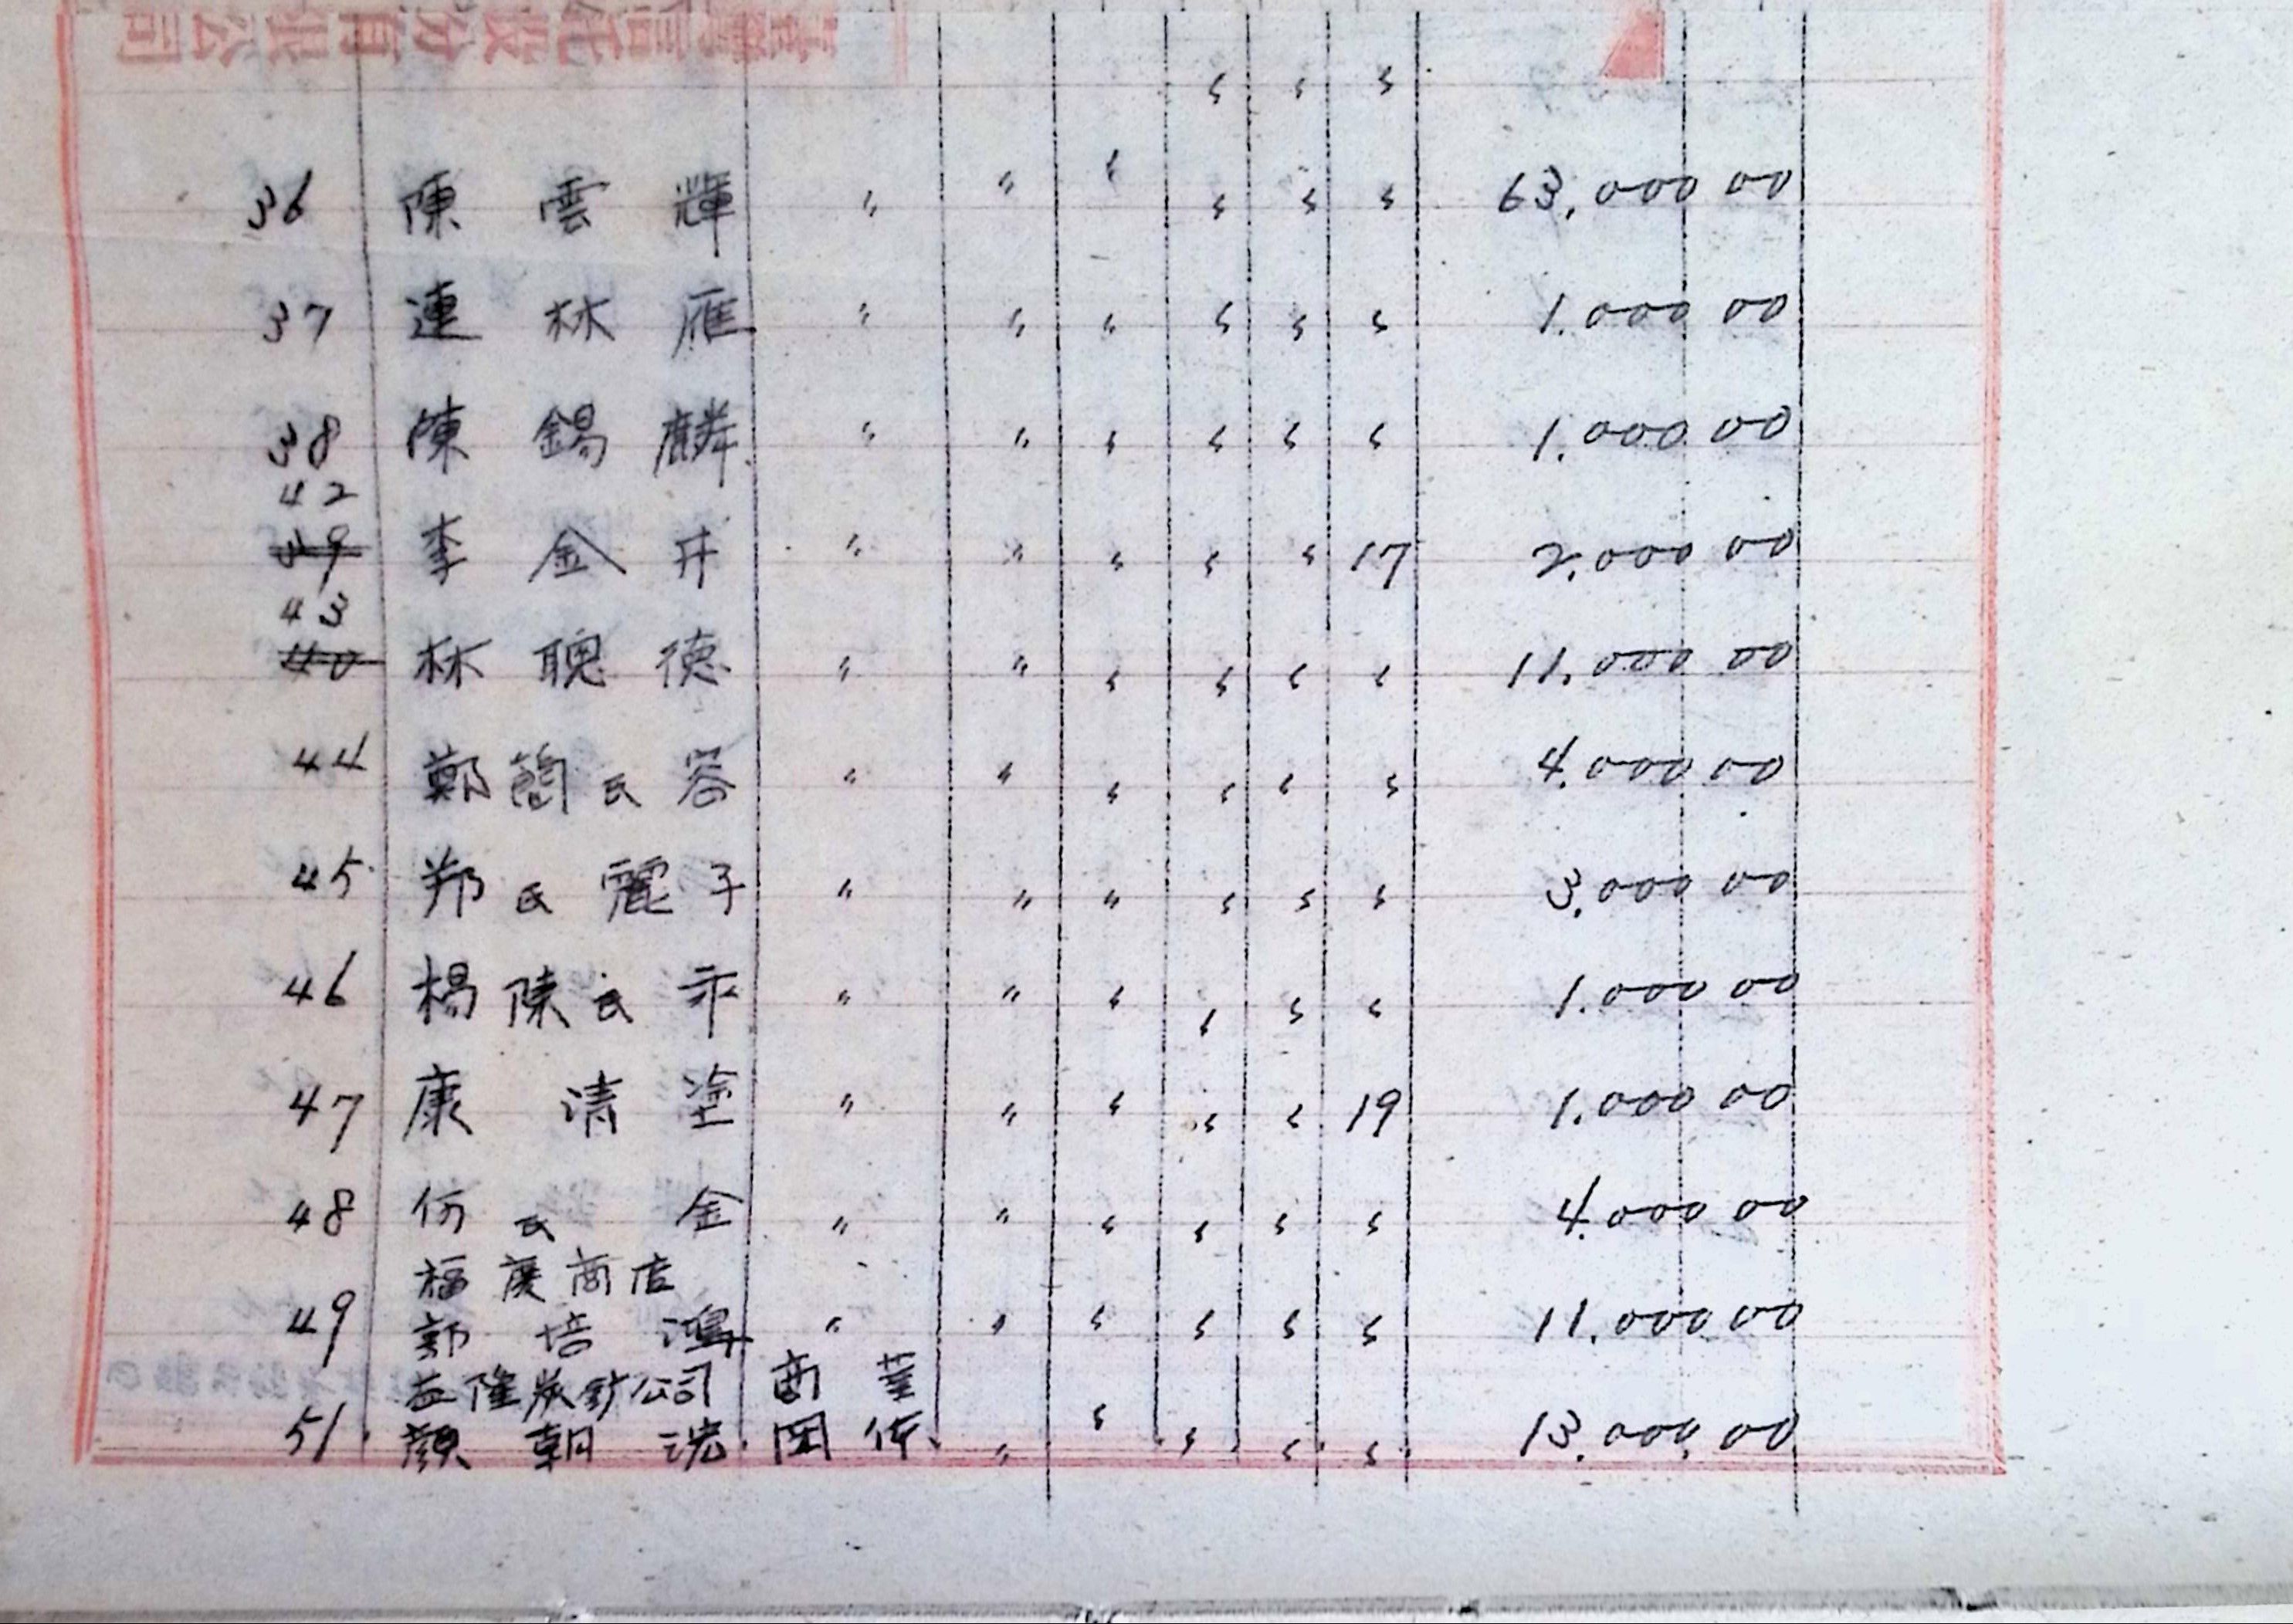 36 陳雲輝 〃 〃 〃 〃 〃 〃 63.000 00
37 連林雁 〃 〃 〃 〃 〃 〃 1.000 00
38 陳錫麟 〃 〃 〃 〃 〃 〃 1.000 00
42
39 李金井 〃 〃 〃 〃 〃 17 2.000 00
43
40 林聰德 〃 〃 〃 〃 〃 〃 11.000 00
44 鄭簡氏容 〃 〃 〃 〃 〃 〃 4.000 00
45 鄭氏麗子 〃 〃 〃 〃 〃 〃 3.000 00
46 楊陳氏 〃 〃 〃 〃 〃 〃 1.000 00
47 康清塗 〃 〃 〃 〃 〃 19 1.000 00
48 氏金 〃 〃 〃 〃 〃 〃 4.000 00
福慶商店
49 郭培鴻 〃 〃 〃 〃 〃 〃 11.000 00
益隆炭鑛公司
51 顏朝 〃 〃 〃 〃 〃 13.000 00